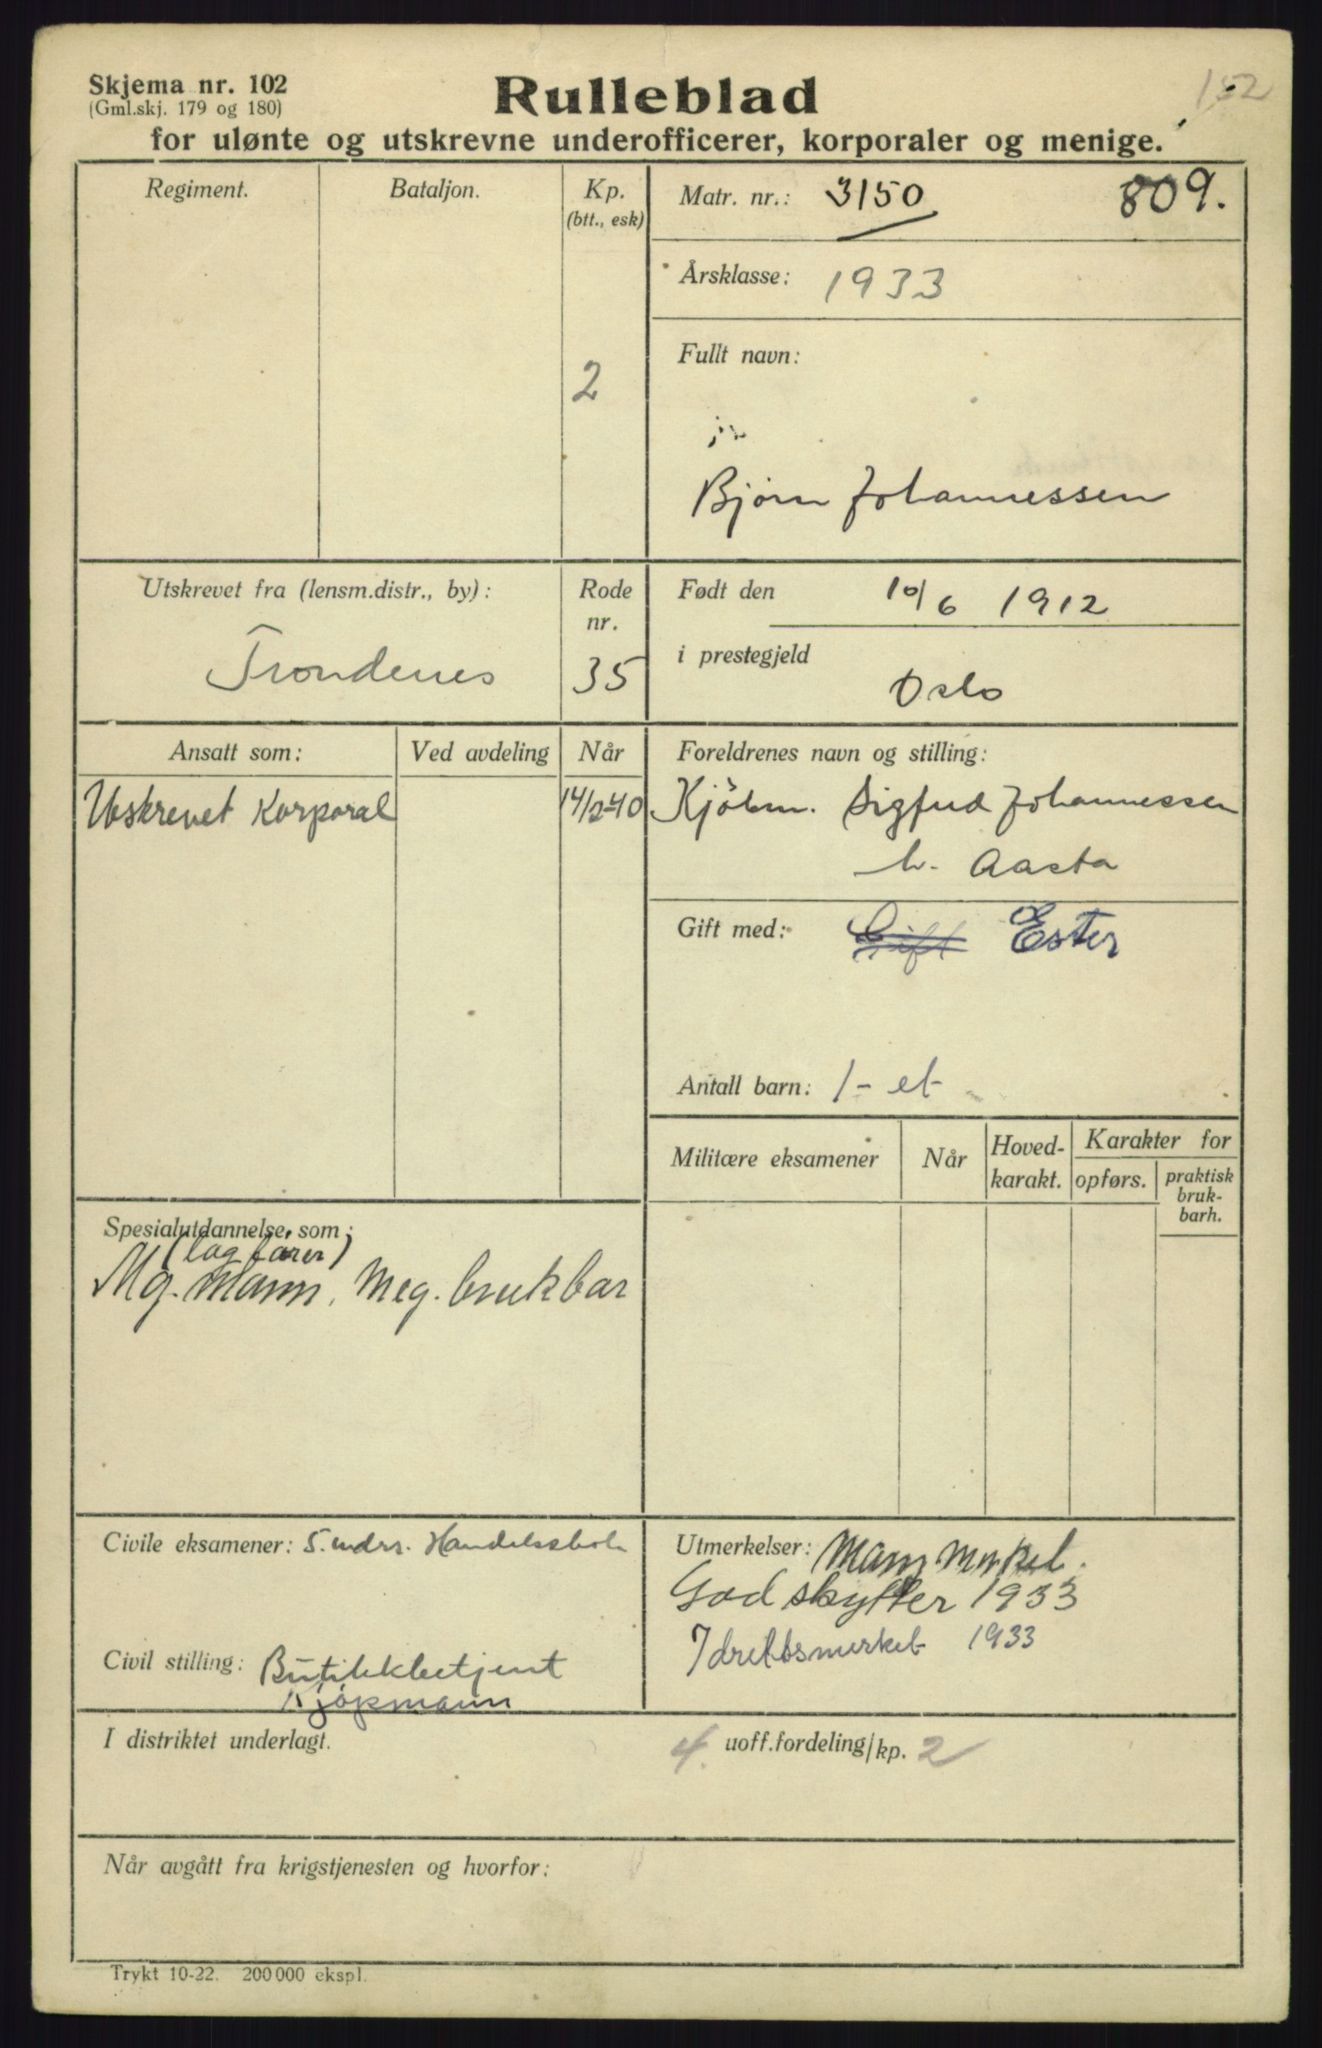 152
Skjema nr. 102
(Gml.skj. 179 og 180)
Rulleblad
for ulønte og utskrevne underofficerer, korporaler og menige.
Regiment.
Bataljon.
Kp.
(btt., esk)
2
Matr. nr.: 3150
809.
Årsklasse: 1933
Fullt navn:
Bjørn Johannessen
Utskrevet fra (lensm.distr., by):
Trondenes
Rode
nr.
35
Født den 10/6 1912
i prestegjeld
Oslo
Ansatt som:
Ved avdeling
Når
Utskrevet Korporal
14/2-40
Foreldrenes navn og stilling:
Kjøbm. Sigfud Johannessen
h. Aasta
Gift med: Gift Ester
Antall barn: 1 - et
Militære eksamener
Når
Hoved-
karakt.
Karakter for
opførs.
praktisk
bruk-
barh.
Spesialutdannelse som:
(lagfører)
Mg. mann, Meg. brukbar
Civile eksamener: 5. mdrs. Handelsskole
Civil stilling: Butikkbetjent
Kjøpmann
Utmerkelser:
God skytter 1933
Idrettsmerket 1933
I distriktet underlagt.
4. uoff.fordeling/kp. 2
Når avgått fra krigstjenesten og hvorfor:
Trykt 10-22. 200 000 ekspl.